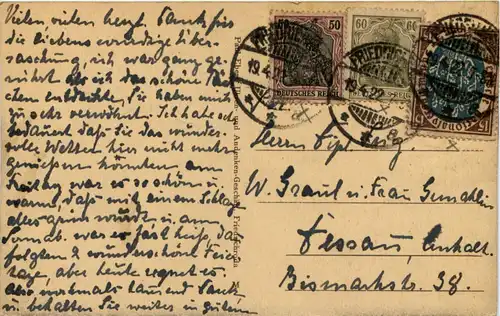 Vielen vielen herzl. Dank für
die liebenswürdige Über-
raschung, ich war ganz ge-
rührt als ich das schöne
entdeckte, Sie haben mich
zu sehr verwöhnt. Ich habe
bedauert daß Sie das wunder-
volle Wetter hier nicht mehr
genießen konnten am
Freitag war es so schön u.
warm, daß mit einem Schlag
alles grün wurde u. am
Sonnab. war es fast heiß, da
folgten 2 wunderschöne Feier-
tage, aber heute regnet es
also nochmals tausend Dank
u. behalten Sie weiter in gutem
und Andenken-Geschäft, Friedrichroda
50
DEUTSCHES REICH
60
60
19.4.22
Herrn Dipl. Ing.
W. Graul u. Frau Gemahlin
Dessau, Anhalt.
Bismarckstr. 38.